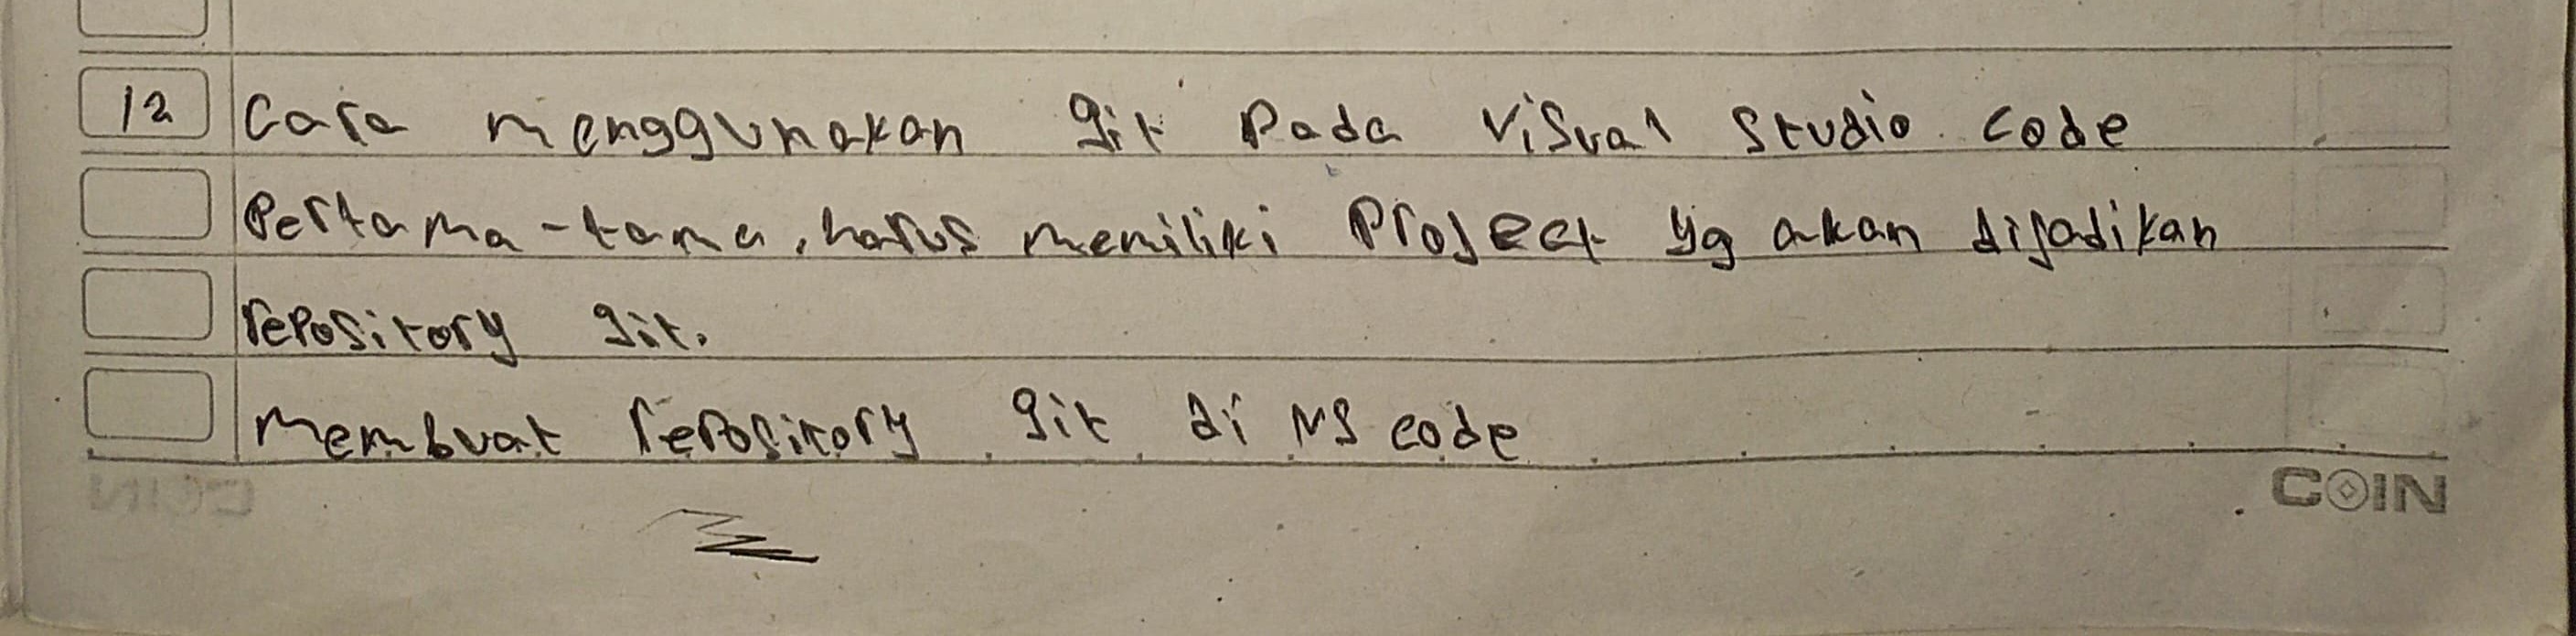 12 Cara menggunakan git pada Visual Studio Code
Pertama-tama, harus memiliki Project yg akan dijadikan
repository git.
Membuat repository git di VS code
COIN